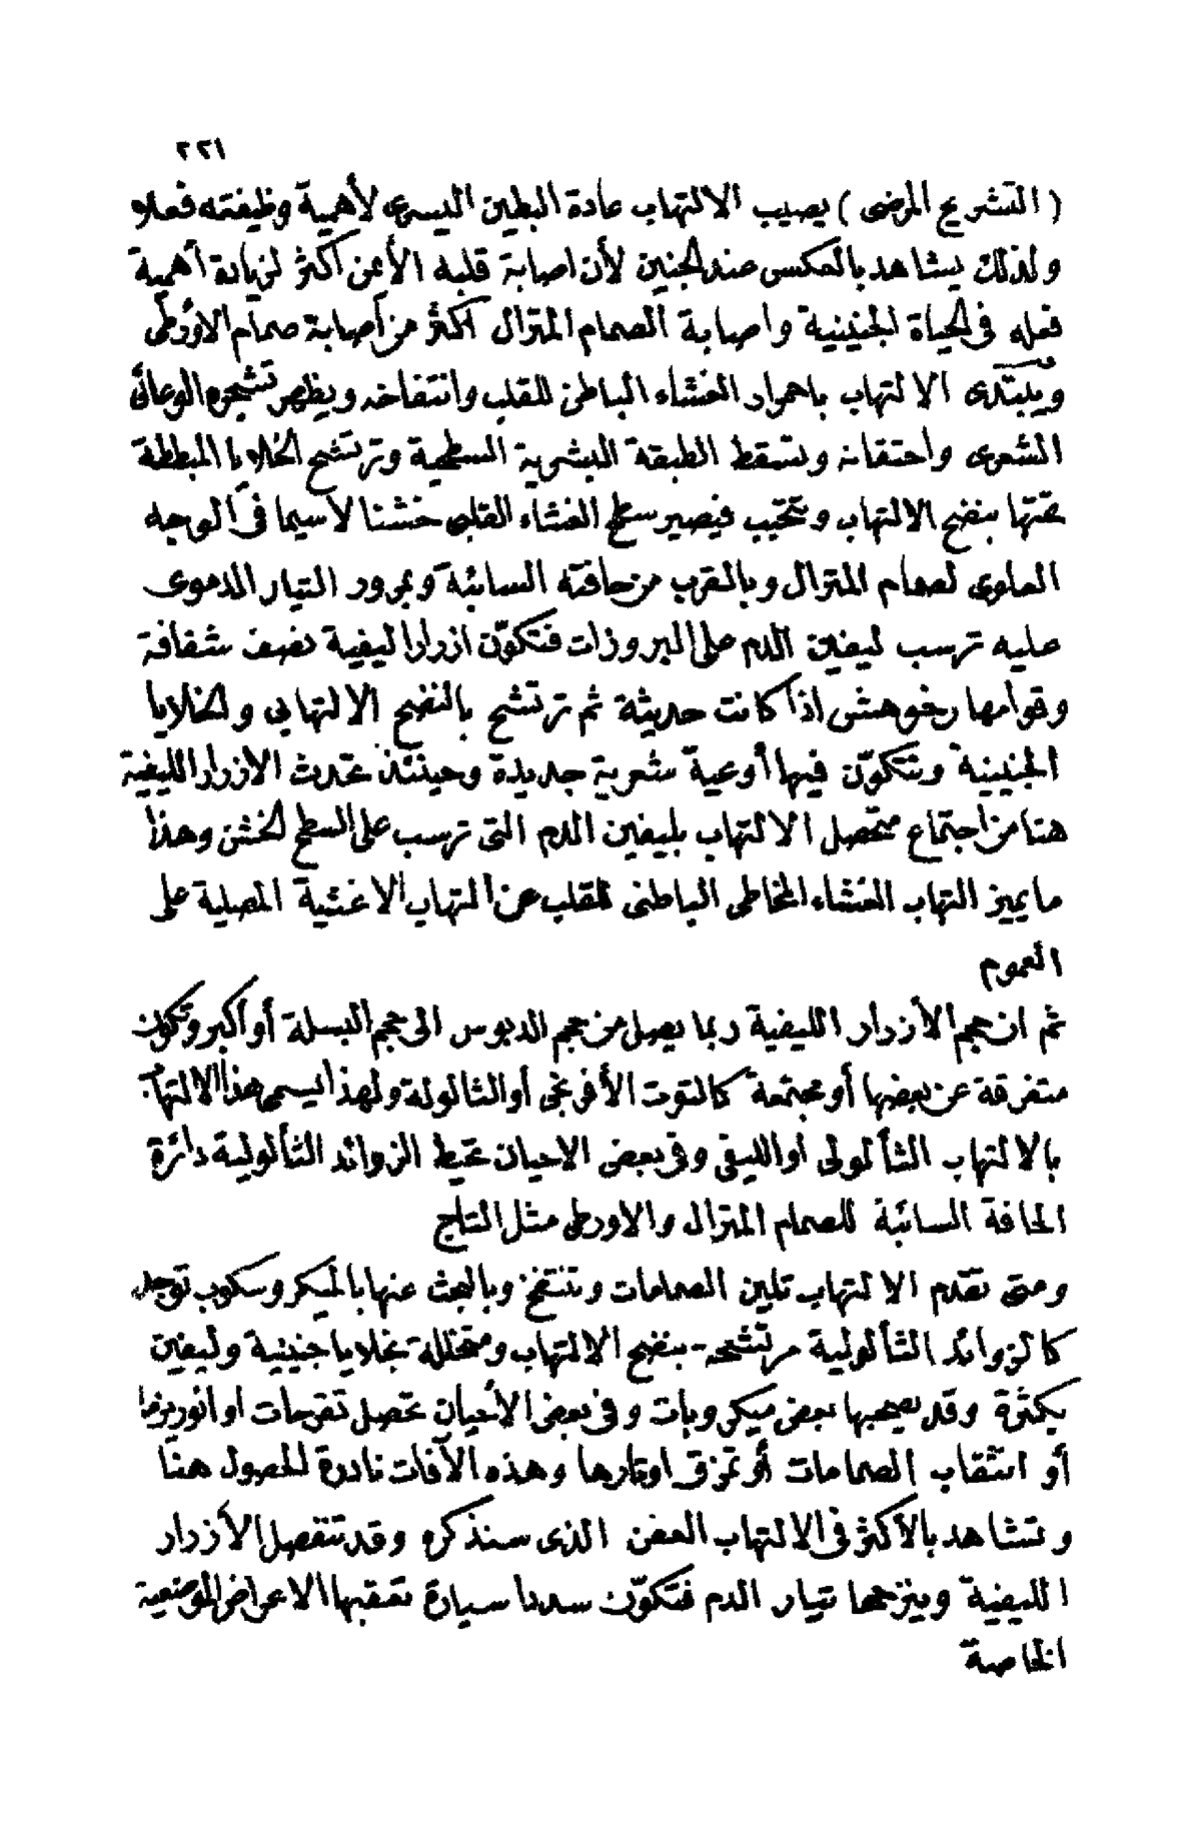 ٢٢١
( التشريح المرضى ) يصيب الالتهاب عادة البطين اليسرى لأهمية وظيفته فعلا
ولذلك يشاهد بالعكس عند الجنين لأن اصابة قلبه الأيمن أكثر لزيادة أهمية
فعله فى الحياة الجنينية واصابة الصمام المترال أكثر من أصابة صمام الاورطى
ويبتدى الالتهاب باحمرار الغشاء الباطن للقلب وانتفاخه ويظهر تشجره الوعائى
الشعرى واحتقانه وتسقط الطبقة البشرية السطحية وترتشح الخلايا المبططة
تحتها بنضح الالتهاب وتتحبب فيصير سطح الغشاء القلبى خشنا لاسيما فى الوجه
العلوى لصمام المترال وبالقرب من حافته السائبة وبمرور التيار الدموى
عليه ترسب ليفين الدم على البروزات فتكوّن ازرارا ليفية نصف شفافة
وقوامها رخو هش اذا كانت حديثة ثم ترتشح بالنضح الالتهابى والخلايا
الجنينية وتتكوّن فيها أوعية شعرية جديدة وحينئذ تحدث الازرار الليفية
هنا من اجتماع متحصل الالتهاب بليفين الدم التى ترسب على السطح الخشن وهذا
ما يميز التهاب الغشاء المخاطى الباطنى للقلب عن التهاب الاغشية المصلية على
العموم
ثم ان حجم الأزرار الليفية ربما يصل من حجم الدبوس الى حجم البسلة أو أكبر وتكون
متفرقة عن بعضها أو مجتمعة كالتوت الأفرنجى أو الثالولة ولهذا يسمى هذا الالتهاب
بالالتهاب الثألولى أو الليفى وفى بعض الاحيان تحيط الزوائد الثألولية دائرة
الحافة السائبة للصمام المترال والاورطى مثل التاج
ومتى تقدم الالتهاب تلين الصمامات وتنتفخ وبالبحث عنها بالميكروسكوب توجد
كالزوائد الثألولية مرتشحة بنضح الالتهاب ومتخللة بخلايا جنينية وليفين
بكثرة وقد يصحبها بعض ميكروبات وفى بعض الأحيان تحصل تقرحات او انوريزما
أو انثقاب الصمامات أو تمزق اوتارها وهذه الآفات نادرة الحصول هنا
وتشاهد بالأكثر فى الالتهاب العفن الذى سنذكره وقد تنفصل الأزرار
الليفية وينزحها تيار الدم فتكوّن سددا سيارة تعقبها الاعراض الموضعية
الخاصة